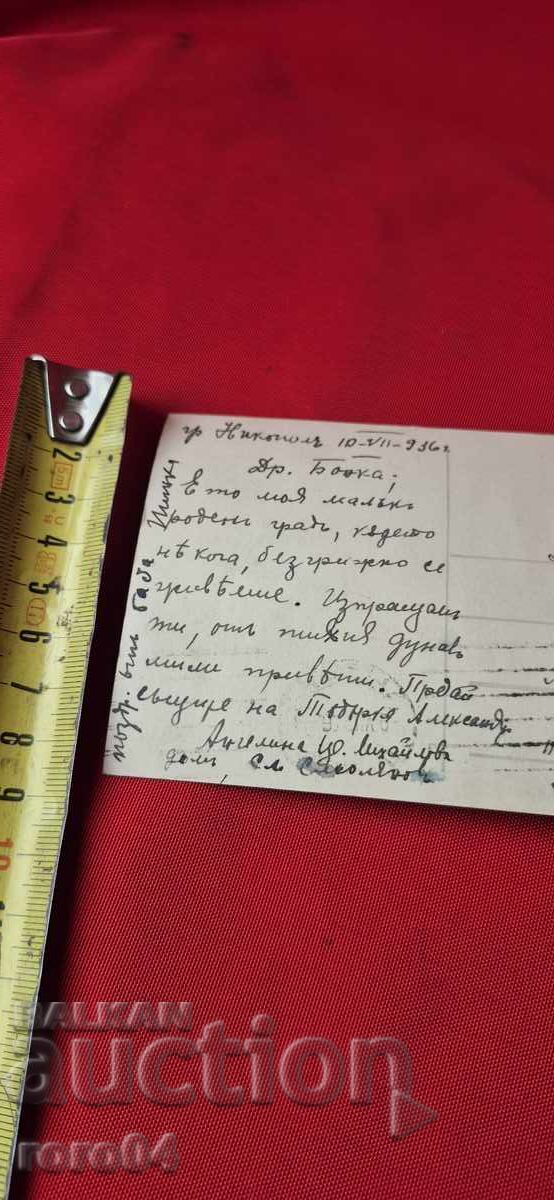 гр Никополъ 10-VII-936 г
Др. Бонка;
Ето моя малъкъ
роденъ градъ, кѫдето
нѣкога, безгрижно се
живѣеше. Изпращамъ
ти, отъ тихия дунавъ
мили привѣти. Предай
същире на Александър
Ангелина Михайлова
поздр. отъ баба
2
3
4
5
6
7
8
9
10
5m
BALKAN
auction
roro04